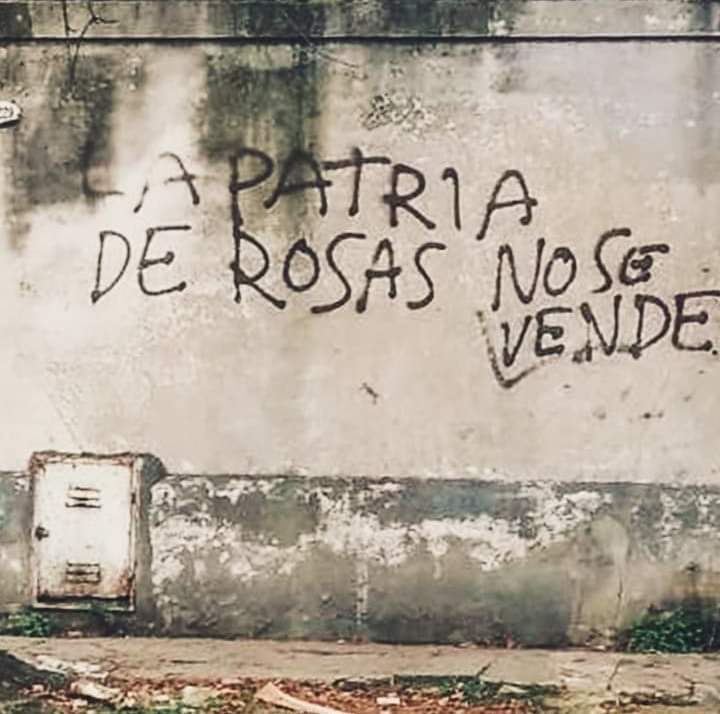 LA PATRIA
DE ROSAS NO SE
VENDE.